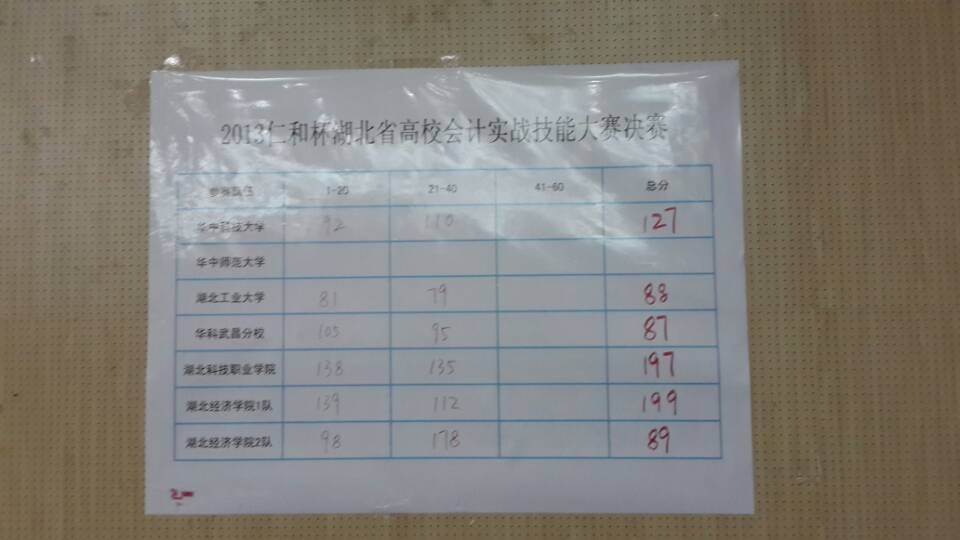 2013仁和杯湖北省高校会计实战技能大赛决赛
参赛队伍 1-20 21-40 41-60 总分
华中科技大学 92 110 127
华中师范大学
湖北工业大学 81 79 88
华科武昌分校 105 95 87
湖北科技职业学院 138 135 197
湖北经济学院1队 139 112 199
湖北经济学院2队 98 178 89